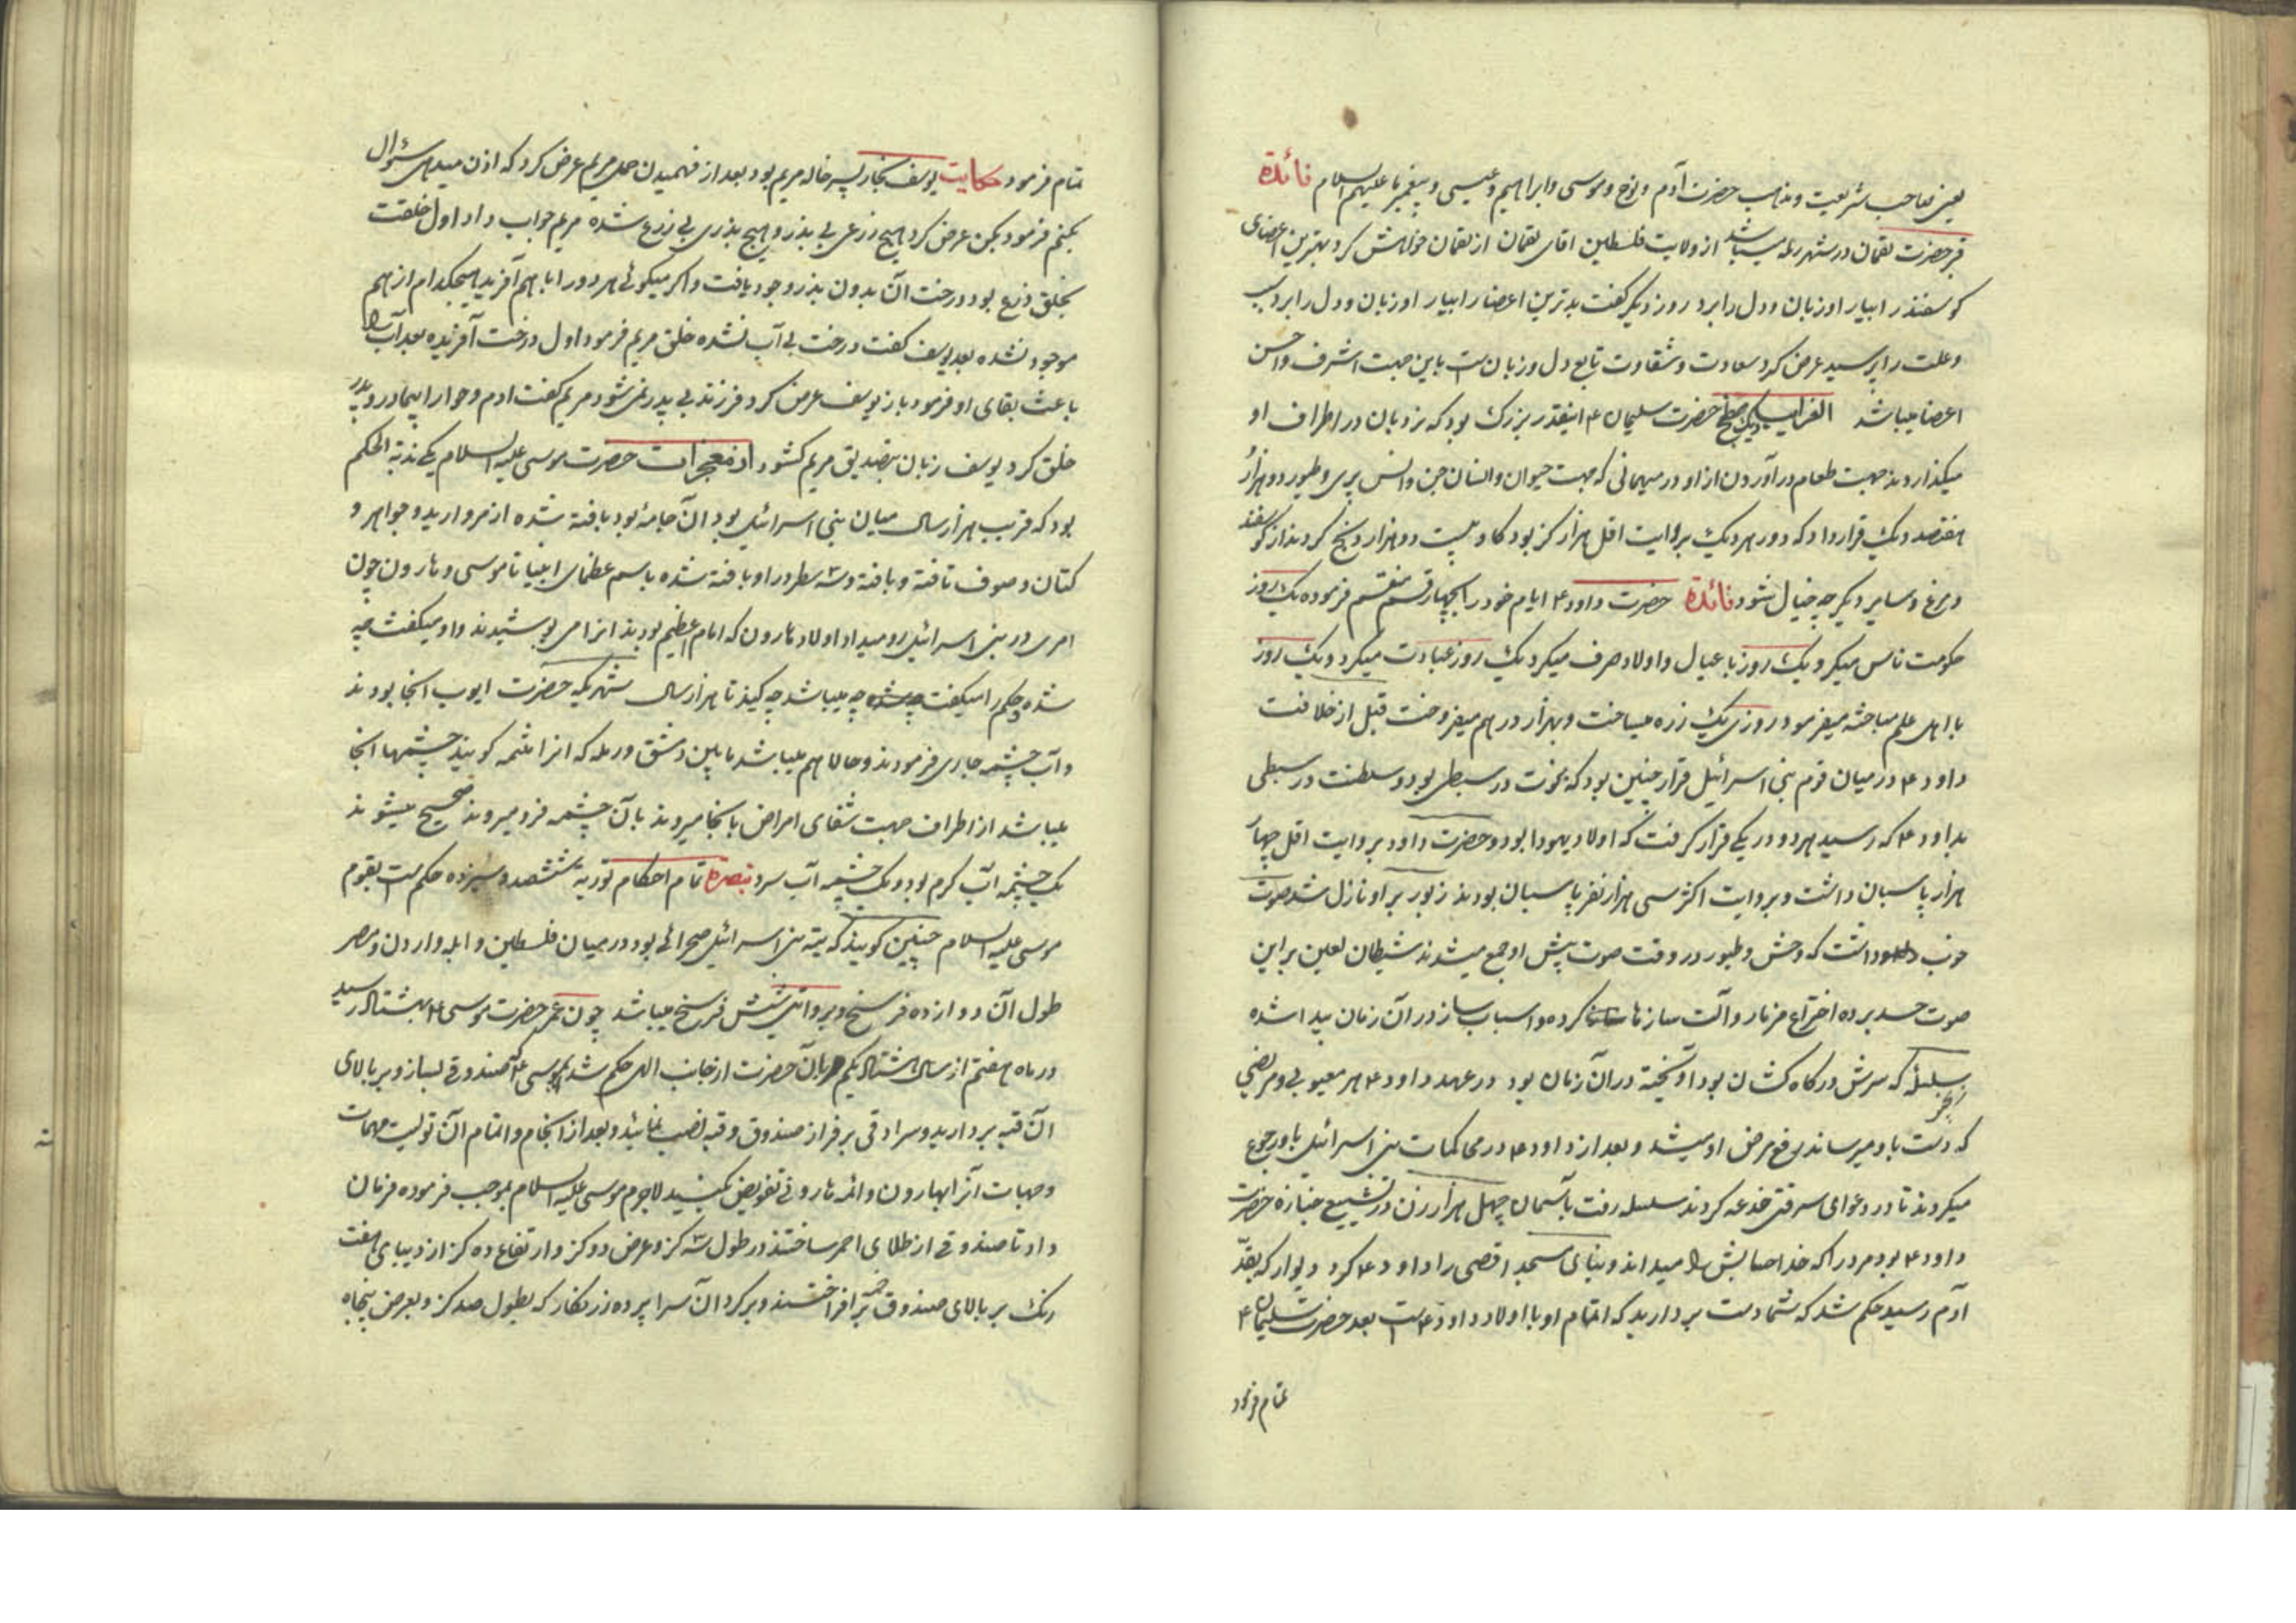 یعنی صاحب شریعت و مذاهب حضرت آدم و نوح و موسی و ابراهیم و عیسی و پیغمبر ما علیهم السلام فائدة
قبر حضرت لقمان در شهر رمله میباشد از ولایت فلسطین اقای لقمان از لقمان خواهش کرد بهترین اعضای
کوسفند را بیار او زبان و دل را برد روز دیگر گفت بدترین اعضا را بیار او زبان و دل را برد سبب
و علت را پرسید عرض کرد سعادت و شقاوت تابع دل و زبان است باین جهت اشرف و احسن
اعضا میباشد دیک مطبخ حضرت سلیمان ۴ اینقدر بزرک بود که نردبان در اطراف او
میکذاردند جهت طعام در آوردن از او در میهمانی که جهت حیوان و انسان جن و انس پری و طیور دو هزار
هفتصد دیک قرار داد که دور هر دیک بروایت اقل هزار کز بود کاو بیست دو هزار ذبح کردند از کوسفند
و مرغ و سایر دیگر چه خیال شود فائدة حضرت داود ۴ ایام خود را بچهار قسم منقسم فرموده یک روز
حکومت ناس میکرد یک روز با عیال و اولاد صرف میکرد یک روز عبادت میکرد و یک روز
با اهل علم مباحثه میفرمود روزی یک زره میساخت و بهزار درهم میفروخت قبل از خلافت
داود ۴ در میان قوم بنی اسرائیل قرار چنین بود که نبوت در سبطی بود و سلطنت در سبطی
بداود ۴ که رسید هر دو در یکی قرار گرفت که اولاد یهودا بود و حضرت داود بروایت اقل چهار
هزار پاسبان داشت و بروایت اکثر سی هزار نفر پاسبان بودند زبور بر او نازل شد صوت
خوب داشت که وحش و طیور در وقت صوت پیش او جمع میشدند شیطان لعین بر این
صوت حسد برده اختراع مزمار و آلت سازها کرده و اسباب ساز در آن زمان پیدا شده
سلسلهٔ که سرش در کاه کشان بود آویخته در آن زمان بود در عهد داود ۴ هر معیوبی و مریضی
که دست باو میرساند رفع مرض او میشد و بعد از داود ۴ در محاکمات بنی اسرائیل باو رجوع
میکردند تا در دعوای سرقتی خدعه کردند سلسله رفت بآسمان چهل هزار زن در تشییع جنازه حضرت
داود ۴ بود مرد را که خدا حسابش را میداند و بنای مسجد اقصی را داود ۴ کرد دیوار که بقد
آدم رسید حکم شد که شما دست بردارید که اتمام او با اولاد داود ۴ است بعد حضرت سلیمان ۴
تمام فرمود
تمام فرمود حکایت یوسف نجار پسر خاله مریم بود بعد از فهمیدن حمل مریم عرض کرد که اذن میدهی سؤال
بکنم فرمود بکن عرض کرد هیچ زرعی بی بذر و هیچ بذری بی زرع شده مریم جواب داد اول خلقت
بخلق زرع بود درخت آن بدون بذر وجود یافت و اکر میکوئی هر دو را با هم آفرید هیچکدام از هم
موجود نشده بعد یوسف گفت درخت بی آب نشده خلق مریم فرمود اول درخت آفریده بعد آب را
باعث بقای او فرمود باز یوسف عرض کرد فرزند بی پدر نمی شود مریم گفت ادم و حوا را بیمادر و پدر
خلق کرد یوسف زبان بتصدیق مریم کشود از معجزات حضرت موسی علیه السلام یکی الحکم
بود که قریب هزار سال میان بنی اسرائیل بود آن جامهٔ بود بافته شده از مروارید و جواهر و
کتان و صوف تافته و بافته و سه سطر در او بافته شده باسم عظمای انبیا تا موسی و هارون چون
امری در بنی اسرائیل رو میداد اولاد هارون که امام اعظم بودند انرا می پوشیدند و او میکفت چه
شده و حکم را میکفت چه میباشد چه کنید تا هزار سال شهریکه حضرت ایوب انجا بودند
و آب چشمه جاری فرمودند و حالا هم میباشد مابین دمشق و رمله که انرا کویند چشمها انجا
میباشد از اطراف جهت شفای امراض بانجا میروند بآن چشمه فرو میروند صحیح میشوند
یک چشمه آب کرم بود و یک چشمه آب سرد تبصرة تمام احکام توریة ششصد و سیزده حکم است بقوم
موسی علیه السلام چنین کویند که تیه بنی اسرائیل صحرائی بود در میان فلسطین و ایله و اردن و مصر
طول آن دوازده فرسخ و بروایتی شش فرسخ میباشد چون عمر حضرت موسی ۴ بهشتاد رسید
در ماه هفتم از سال هشتاد یکم بآن حضرت از جانب الله حکم شد که صندوقی بساز و بر بالای
آن قبه بردارید و سرادقی بر فراز صندوق و قبه نصب نمائید و بعد از انجام و اتمام آن تولیت مهمات
و جهات آنرا بهارون و ائمه هارونی تفویض بکنید لاجرم موسی علیه السلام بموجب فرموده فرمان
داد تا صندوقی از طلای احمر ساختند در طول سه کز و عرض دو کز و ارتفاع ده کز از دیبای هفت
رنک بر بالای صندوق برافراختند و بر کرد آن سراپرده زرنکار که بطول صد کز و بعرض پنجاه